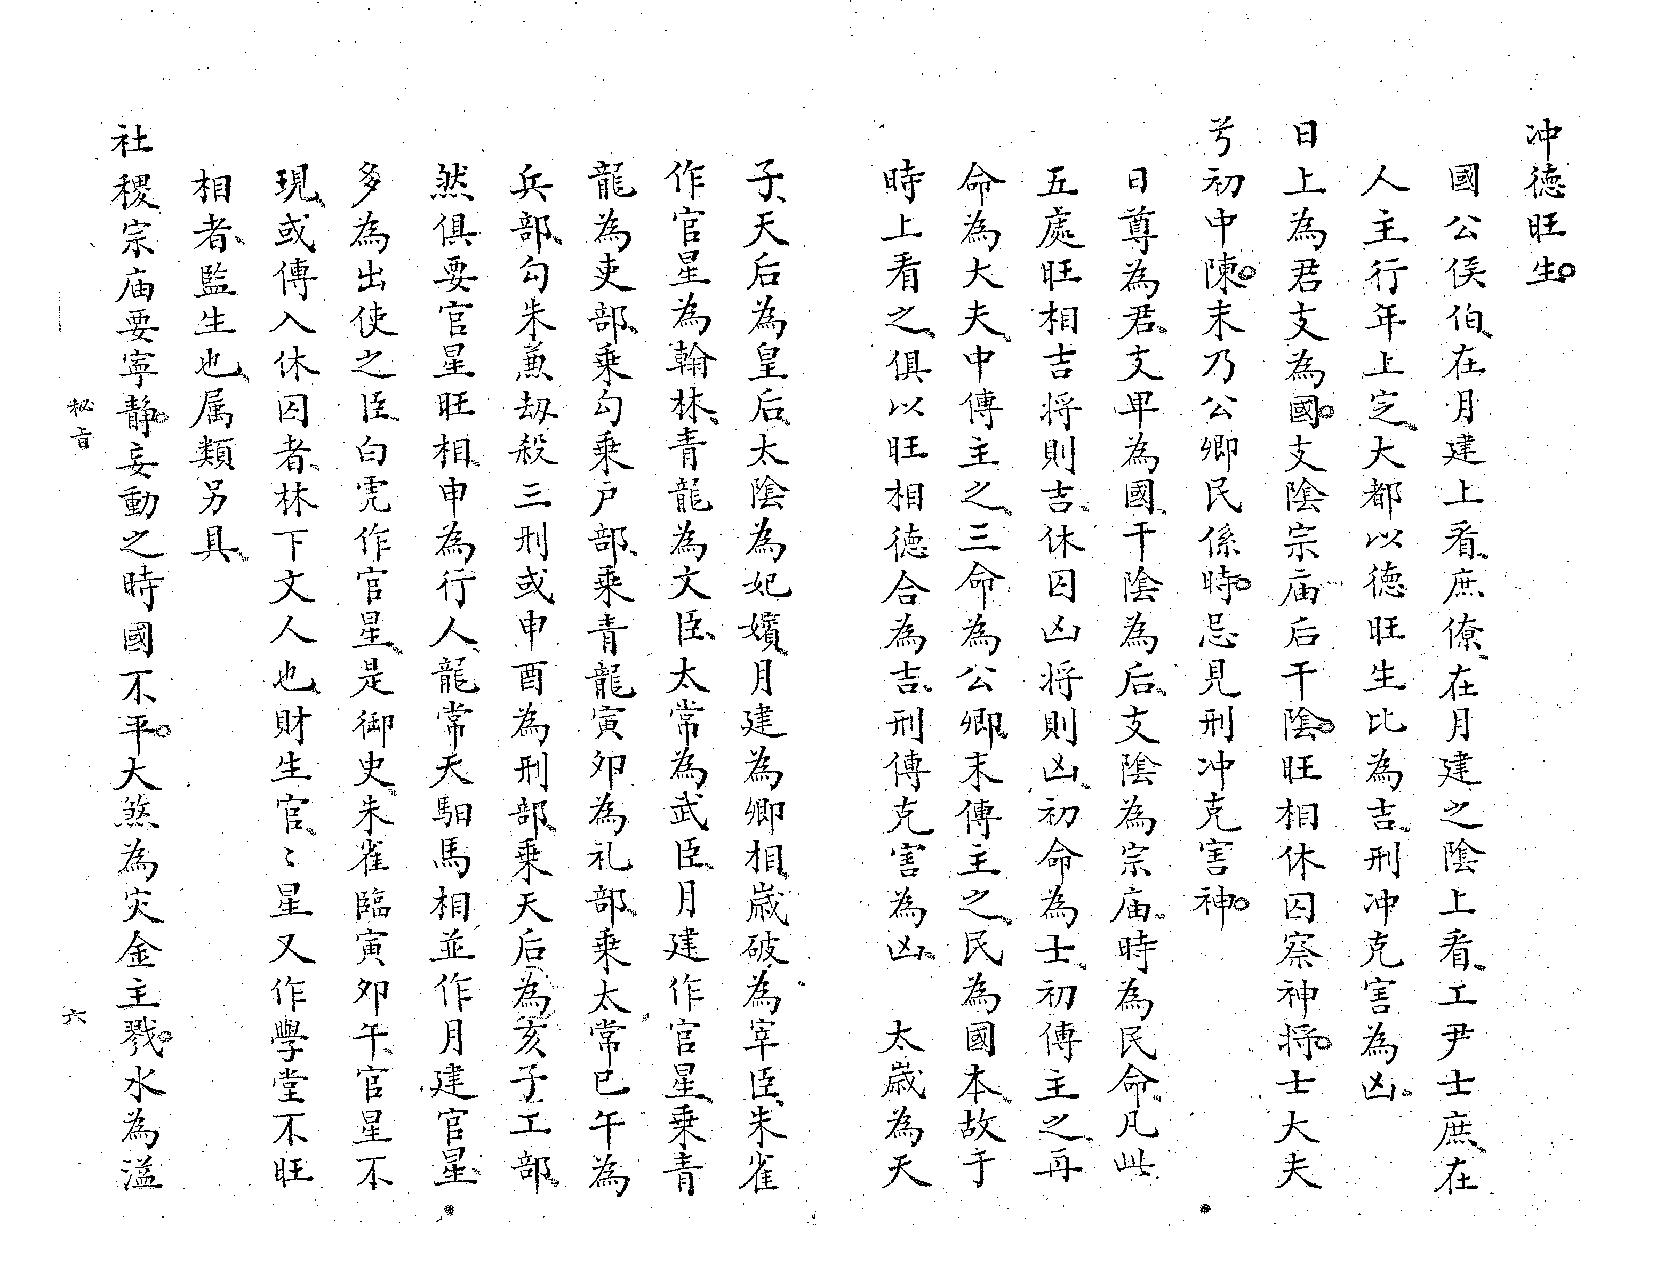 冲德旺生。
國公侯伯、在月建上看、庶僚、在月建之陰上看、工尹士庶、在
人主行年上定、大都以德旺生比為吉、刑冲克害為凶。
日上為君支為國。支陰宗庙后干陰。旺相休囚察神將。士大夫
兮初中陳。末乃公卿民係時。忌見刑冲克害神。
日尊為君、支卑為國、干陰為后、支陰為宗庙、時為民命、凡此
五處旺相吉將則吉、休囚凶將則凶、初命為士、初傳主之、再
命為大夫、中傳主之、三命為公卿、末傳主之、民為國本、故于
時上看之、俱以旺相德合為吉、刑傳克害為凶、 太歲為天
子、天后為皇后、太陰為妃嬪、月建為卿相、歲破為宰臣、朱雀
作官星為翰林、青龍為文臣、太常為武臣、月建作官星、乘青
龍為吏部、乘勾乘戸部、乘青龍寅卯為礼部、乘太常巳午為
兵部、勾朱兼劫殺三刑或申酉為刑部、乘天后為亥子工部、
然俱要官星旺相、申為行人、龍常天馹馬相並作月建官星、
多為出使之臣、白虎作官星、是御史、朱雀臨寅卯午、官星不
現、或傳入休囚者、林下文人也、財生官、〻星又作學堂不旺
相者、監生也、属類另具、
社稷宗庙要寧靜。妄動之時國不平。大煞為灾金主戮。水為溢
秘旨
六